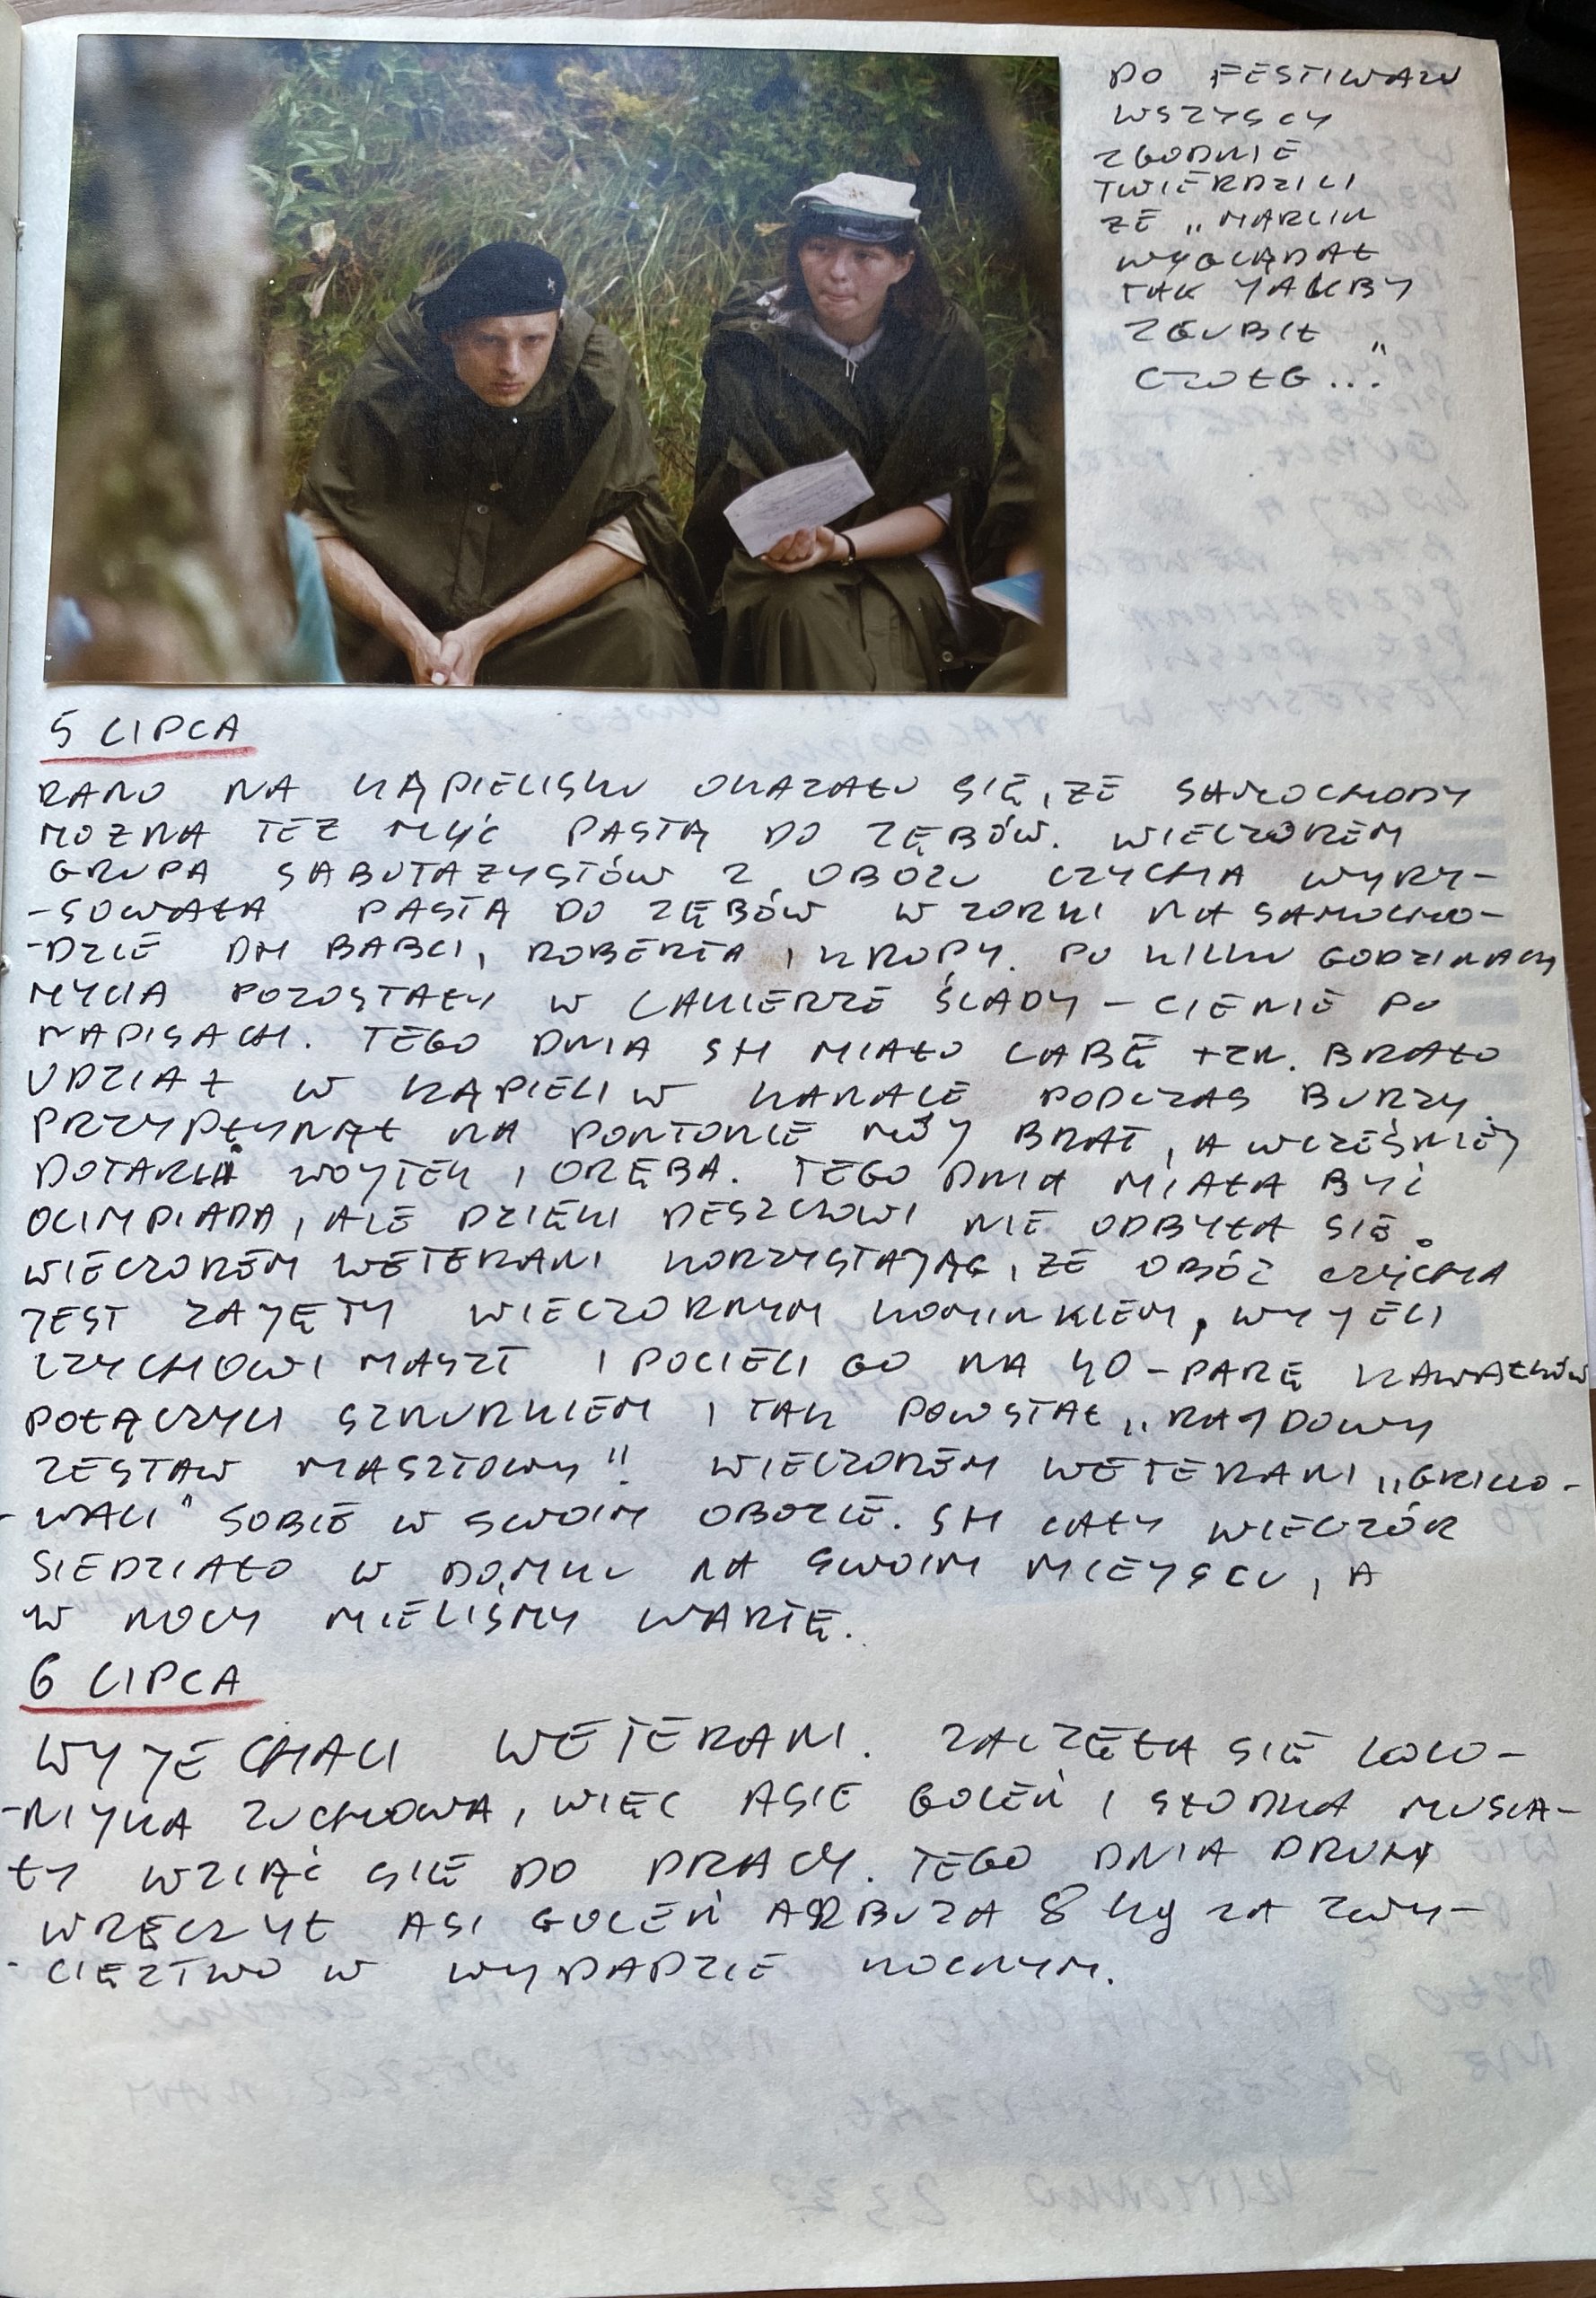 DO FESTIWALU
WSZYSCY
ZGODNIE
TWIERDZILI
ZE „MARCIN
WYGLĄDAŁ
TAK JAKBY
ZGUBIŁ
CZOŁG..."
5 LIPCA
RANO NA KĄPIELISKU OKAZAŁO SIĘ, ZE SAMOCHODY
MOZNA TEZ MYĆ PASTĄ DO ZĘBÓW. WIECZOREM
GRUPA SABOTAZYSTÓW Z OBOZU CZYCHA WYRY-
-SOWAŁA PASTĄ DO ZĘBÓW WZORKI NA SAMOCHO-
-DZIE DH BABCI, ROBERTA I KROPY. PO KILKU GODZINACH
MYCIA POZOSTAŁY W LAKIERZE ŚLADY – CIENIE PO
NAPISACH. TEGO DNIA SH MIAŁO LABĘ TZN. BRAŁO
UDZIAŁ W KĄPIELI W KANALE PODCZAS BURZY.
PRZYPŁYNĄŁ NA PONTONIE MÓJ BRAT, A WCZEŚNIEJ
DOTARLI WOJTEK I ORĘBA. TEGO DNIA MIAŁA BYĆ
OLIMPIADA, ALE DZIĘKI DESZCZOWI NIE ODBYŁA SIĘ.
WIECZOREM WETERANI KORZYSTAJĄC, ZE OBÓZ CZYCHA
JEST ZAJĘTY WIECZORNYM KOMINKIEM, WYJELI
CZYCHOWI MASZT I POCIELI GO NA 40-PARĘ KAWAŁKÓW
POŁĄCZYLI SZNURKIEM I TAK POWSTAŁ „RAJDOWY
ZESTAW MASZTOWY"! WIECZOREM WETERANI „GRILLO-
-WALI" SOBIE W SWOIM OBOZIE. SH CAŁY WIECZÓR
SIEDZIAŁO W DOMKU NA SWOIM MIEJSCU, A
W NOCY MIELISMY WARTĘ.
6 LIPCA
WYJECHALI WETERANI. ZACZĘŁA SIĘ KOLO-
-NIJKA ZUCHOWA, WIĘC ASIE GOLEŃ I SŁODKA MUSIA-
ŁY WZIĄĆ SIĘ DO PRACY. TEGO DNIA DRUHY
WRĘCZYŁ ASI GOLEŃ ARBUZA 8 kg ZA ZWY-
-CIĘZTWO W WYPADZIE NOCNYM.